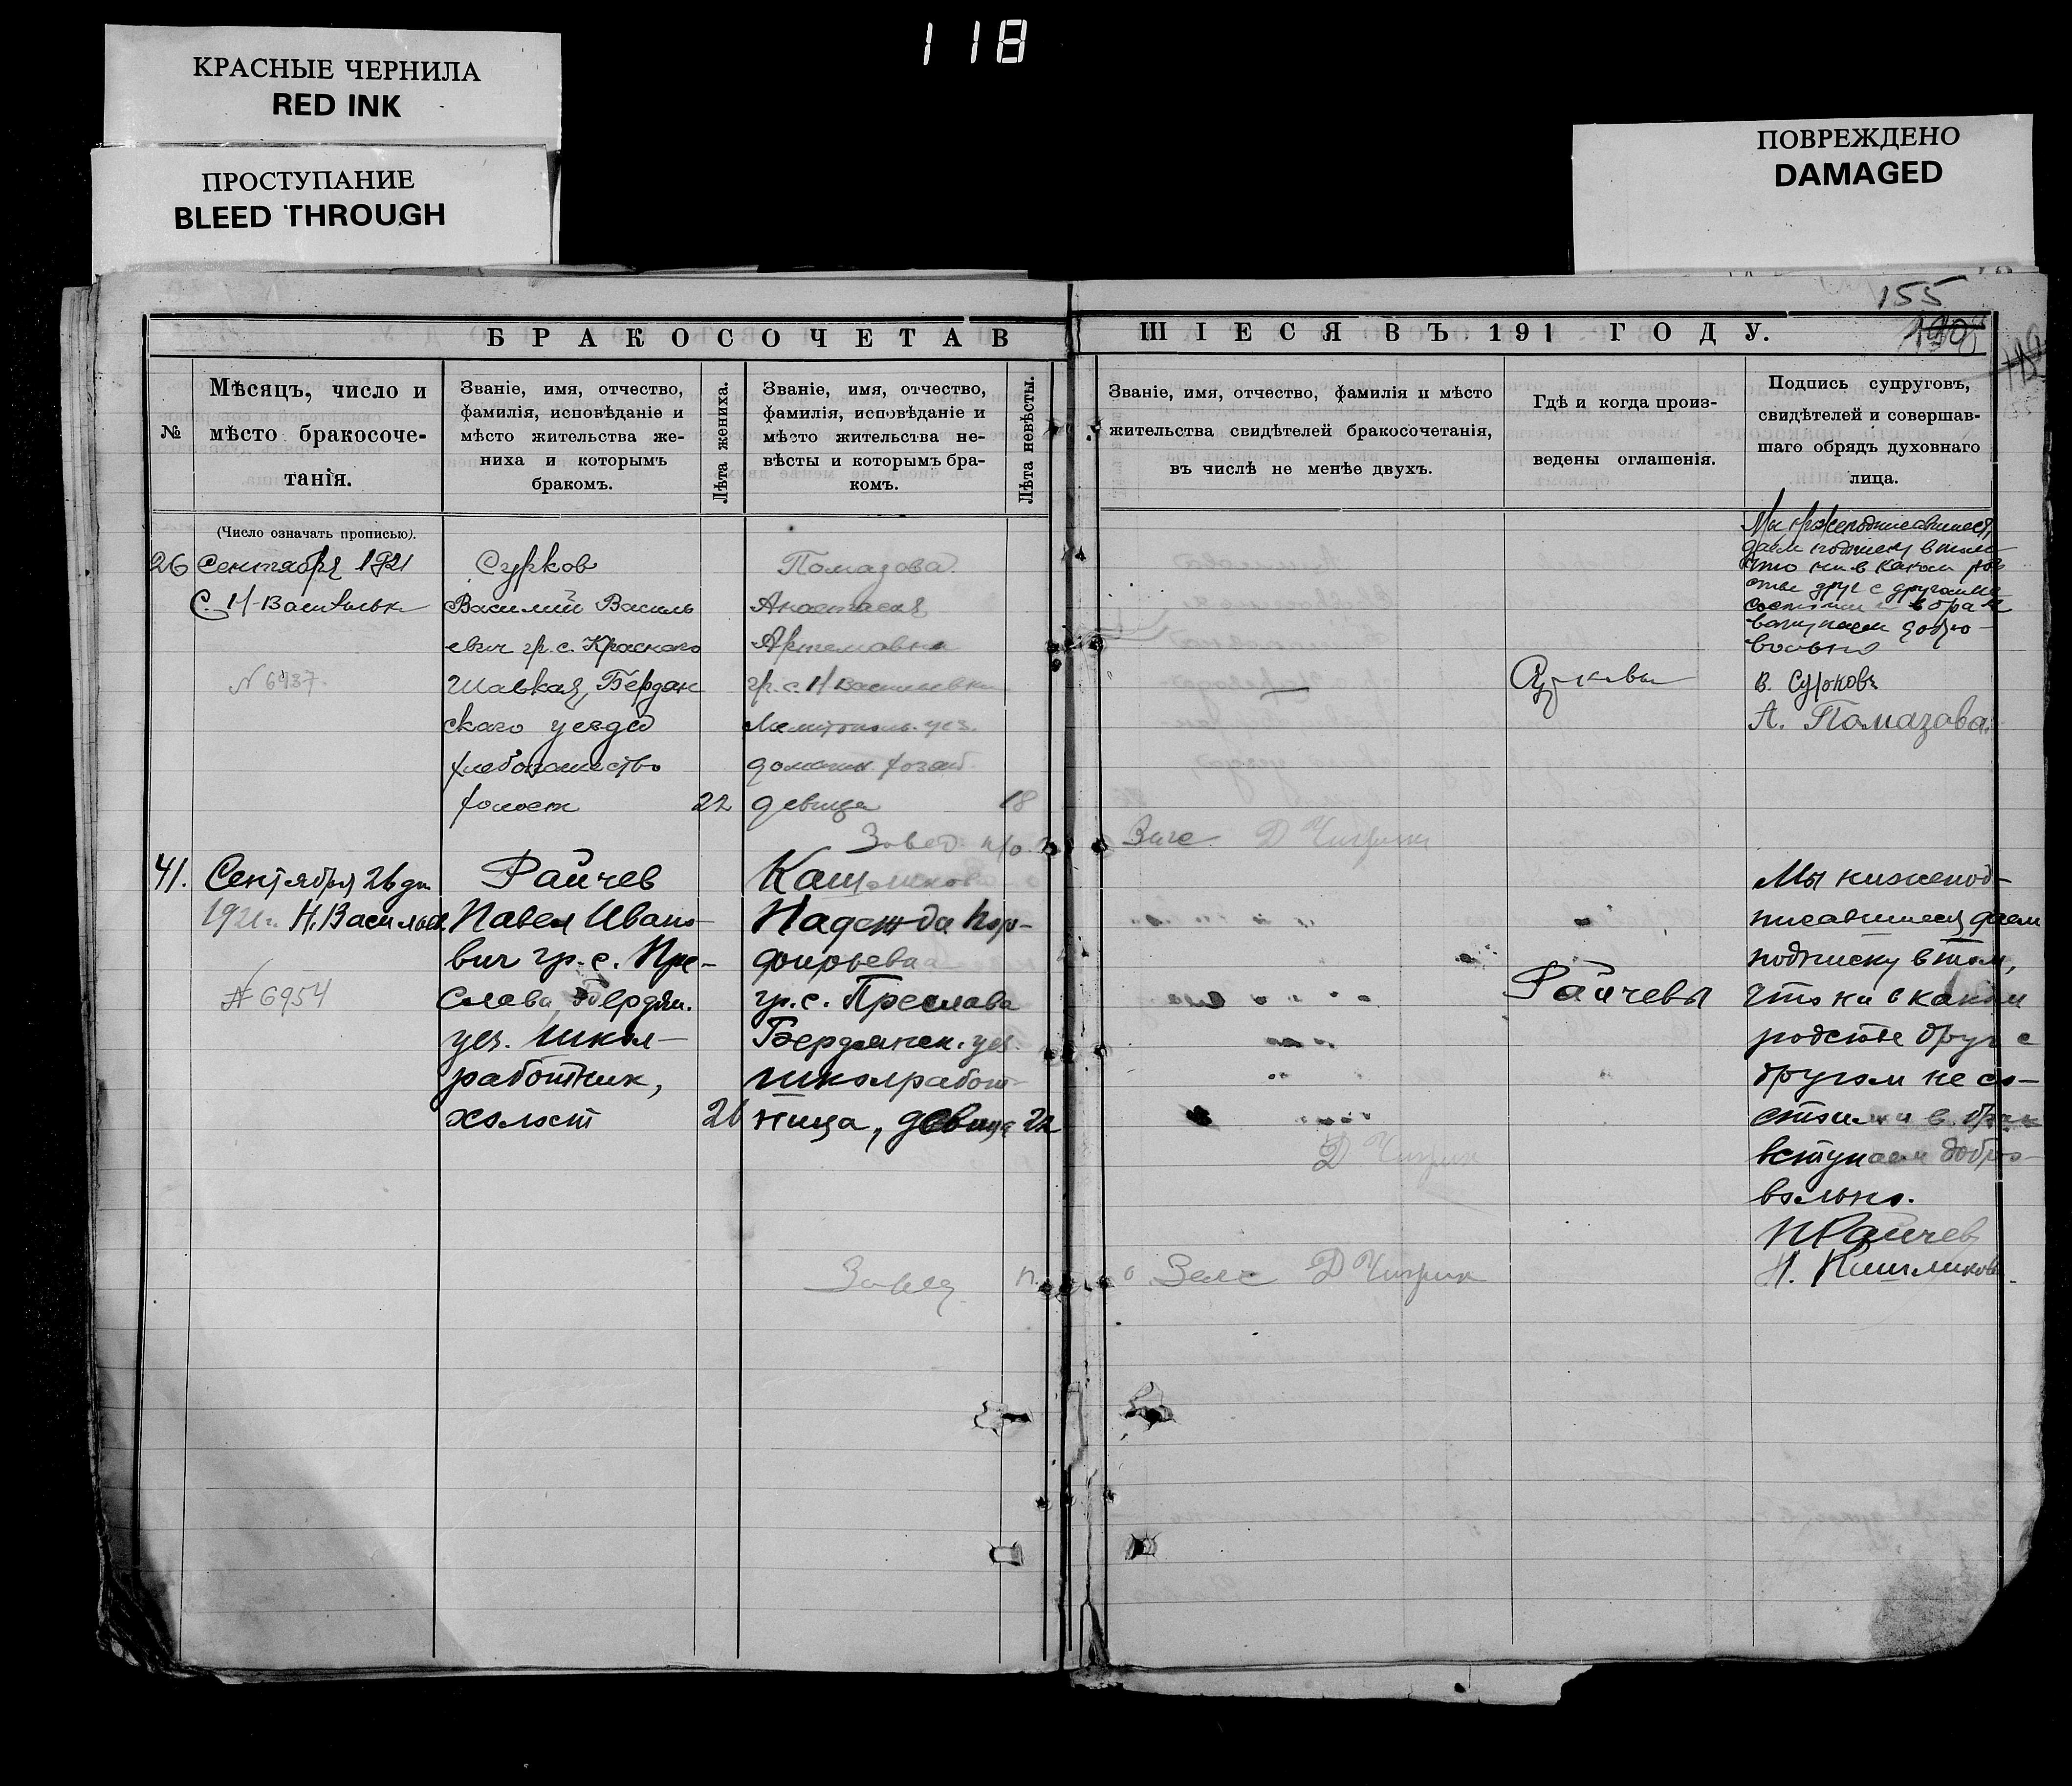 118
КРАСНЫЕ ЧЕРНИЛА
RED INK
ПРОСТУПАНИЕ
BLEED THROUGH
ПОВРЕЖДЕНО
DAMAGED
155
БРАКОСОЧЕТАВ
ШІЕСЯ ВЪ 191 ГОДУ.
№
Мѣсяцъ, число и
мѣсто бракосоче-
танія.
(Число означать прописью).
Званіе, имя, отчество,
фамилія, исповѣданіе и
мѣсто жительства же-
ниха и которымъ
бракомъ.
Лѣта жениха.
Званіе, имя, отчество,
фамилія, исповѣданіе и
мѣсто жительства не-
вѣсты и которымъ бра-
комъ.
Лѣта невѣсты.
Званіе, имя, отчество, фамилія и мѣсто
жительства свидѣтелей бракосочетанія,
въ числѣ не менѣе двухъ.
Гдѣ и когда произ-
ведены оглашенія.
Подпись супруговъ,
свидѣтелей и совершав-
шаго обрядъ духовнаго
лица.
26
Сентября 1921
N 6937
Сурков
Василий Василь
евич гр. с. Красного
Бердян
ского уезда
холост
22
Помазова
Анастасия
Артемовна
гр. с. Н Васильевки
Мелитополь. уез.
девица
18
Завед. п/о
Загс
Сурковы
Мы нижеподписавшиеся,
даем подписку в том
что ни в каком род
стве друг с другом не
состоим и в брак
вступаем добро-
вольно
В. Сурковъ
А. Помазова.
41.
Сентября 26 дн
1921 г. Н. Васильев.
№ 6954
Райчев
Павел Ивано-
вич гр. с. Пре-
слава Бердян.
уез. школ-
работник,
холост
26
Надежда
гр. с. Преслава
Бердянск. уез.
школработ-
ница, девица
22
Райчевы
Мы нижепод-
писавшиеся даем
подписку в том,
что ни в каком
родстве друг с
другом не со-
стоим и в брак
вступаем добро-
вольно.
ПРайчев
Н.
Завед. п.
о Загс